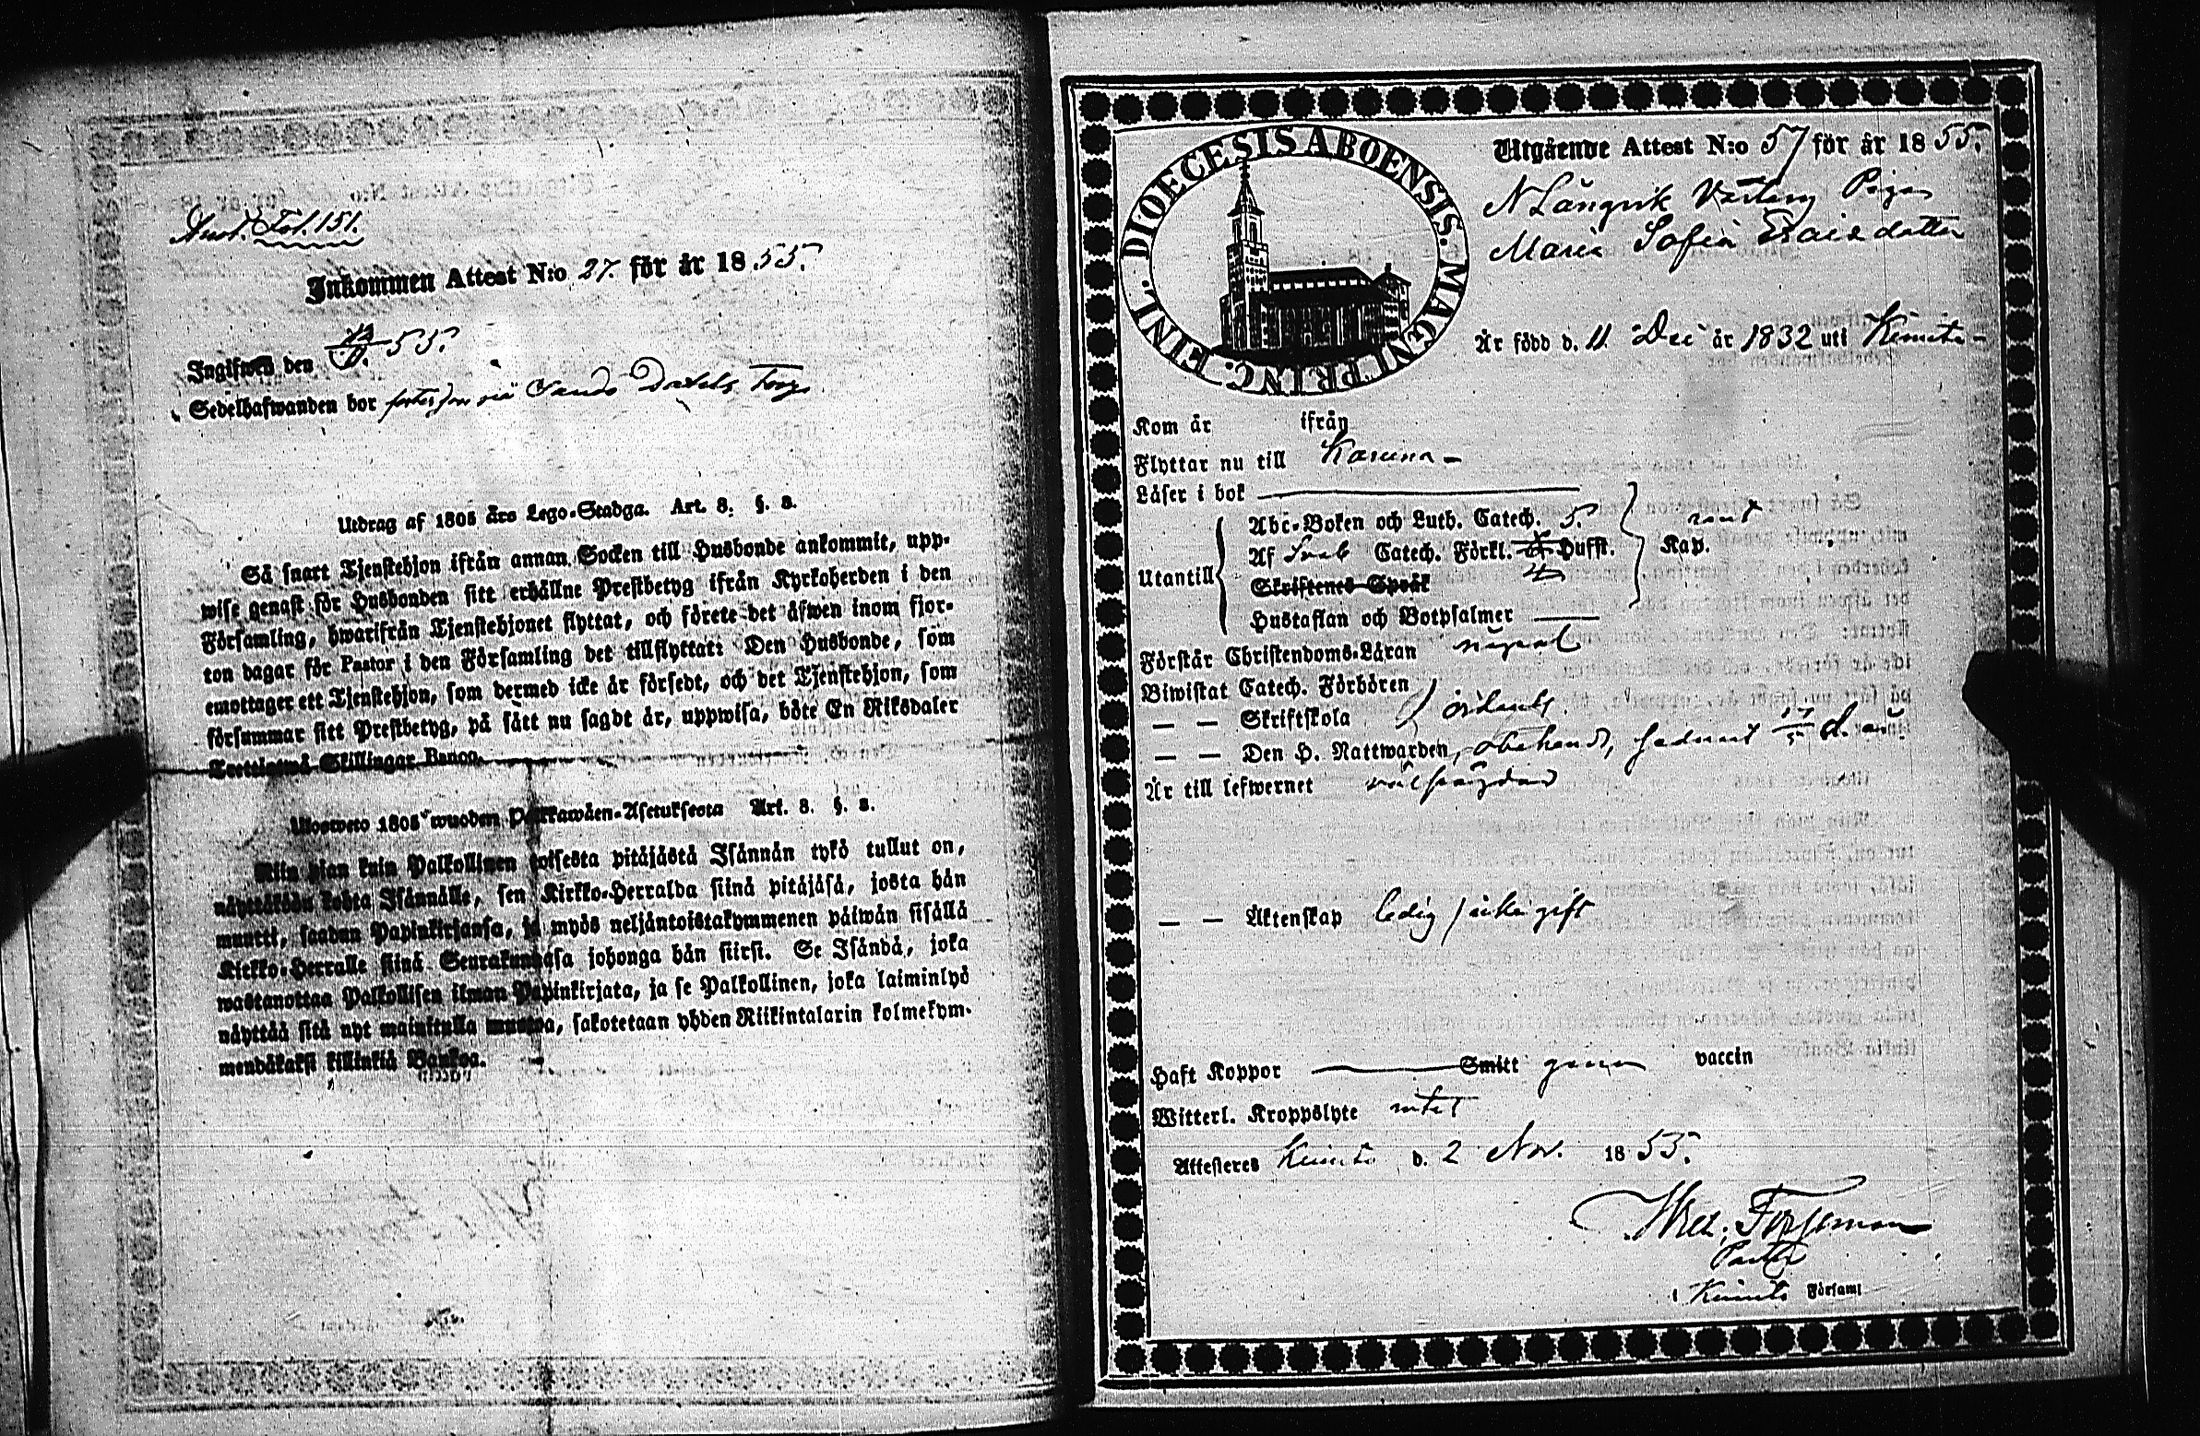 Anot. Fol. 151.
Inkommen Attest N:o 27. för år 1855.
Ingifwen den 55.
Sedelhafwanden bor Sands Torp
Utdrag af 1805 års Lego-Stadga. Art. 8. §. 8.
Så snart Tjenstehjon ifrån annan Socken till Husbonde ankommit, upp-
wise genast för Husbonden sitt erhållne Prestbetyg ifrån Kyrkoherden i den
Församling, hwarifrån Tjenstehjonet flyttat, och förete det äfwen inom fjor-
ton dagar för Pastor i den Församling det tillflyttat: Den Husbonde, som
emottager ett Tjenstehjon, som dermed icke är försedt, och det Tjenstehjon, som
försummar sitt Prestbetyg, på sätt nu sagdt är, uppwisa, böte En Riksdaler
Trettiotwå Skillingar Banco.
Ulosweto 1805 wuoden Palkkawäen-Asetuksesta Art. 8. §. 8.
Niin pian kuin Palkollinen toisesta pitäjästä Isännän tykö tullut on,
näyttäköön kohta Isännälle, sen Kirkko-Herralda siinä pitäjäsä, josta hän
muutti, saadun Papinkirjansa, ja myös neljäntoistakymmenen päiwän sisällä
Kirkko-Herralle siinä Seurakunnasa johonga hän siirsi. Se Isändä, joka
wastanottaa Palkollisen ilman Papinkirjata, ja se Palkollinen, joka laiminlyö
näyttää sitä nyt mainitulla muotoa, sakotetaan yhden Riikintalarin kolmekym-
mendäkaksi killinkiä Bankoa.
DIOECESIS ABOENSIS. MAGNI PRINC. FINL.
Utgående Attest N:o 57 för år 1855.
N Långvik Västerg Pigan
Maria Sofia Esaisdotter
Är född d. 11 Dec år 1832 uti Kimito
Kom år ifrån
Flyttar nu till Karuna
Läser i bok
Utantill
Abc-Boken och Luth. Catech. 5.
Af Sveb Catech. Förkl. Hufst. Kap.
Skriftenes Språk
Hustaflan och Botpsalmer
Förstår Christendoms-Läran något
Biwistat Catech. Förhören
— — Skriftskola
— — Den H. Nattwarden, obehindr, sednast d. år.
Är till lefwernet välfräjdad
— — Äktenskap ledig / icke gift
Haft Koppor Smitt genom vaccin
Witterl. Kroppslyte intet
Attesteres Kimito d. 2 Nov. 1855.
Forssman
Pastor
i Kimito Församl